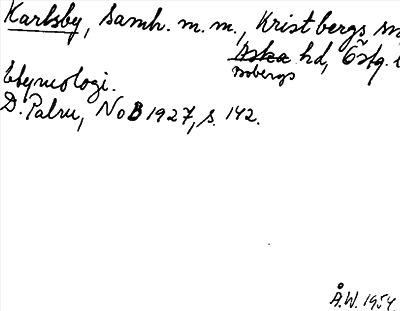 Karlsby, Samh. m. m., Kristbergs
Aska hd, Östg.
Bobergs
Etymologi.
D. Palm, NoB 1927, s. 142.
Å.W. 1954.